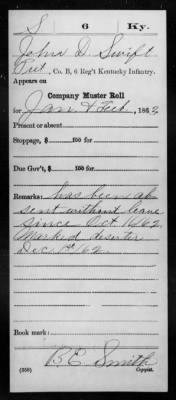 S 6 Ky.
John D. Swift
Pvt, Co. B, 6 Reg't Kentucky Infantry.
Appears on
Company Muster Roll
for Jan & Feb, 1863
Present or absent
Stoppage, $ 100 for
Due Gov't, $ 100 for
Remarks: has been ab
sent without leave
since Oct 11/62
Marked deserter
Dec 1st 62
Book mark:
B. E. Smith
(358) Copyist.